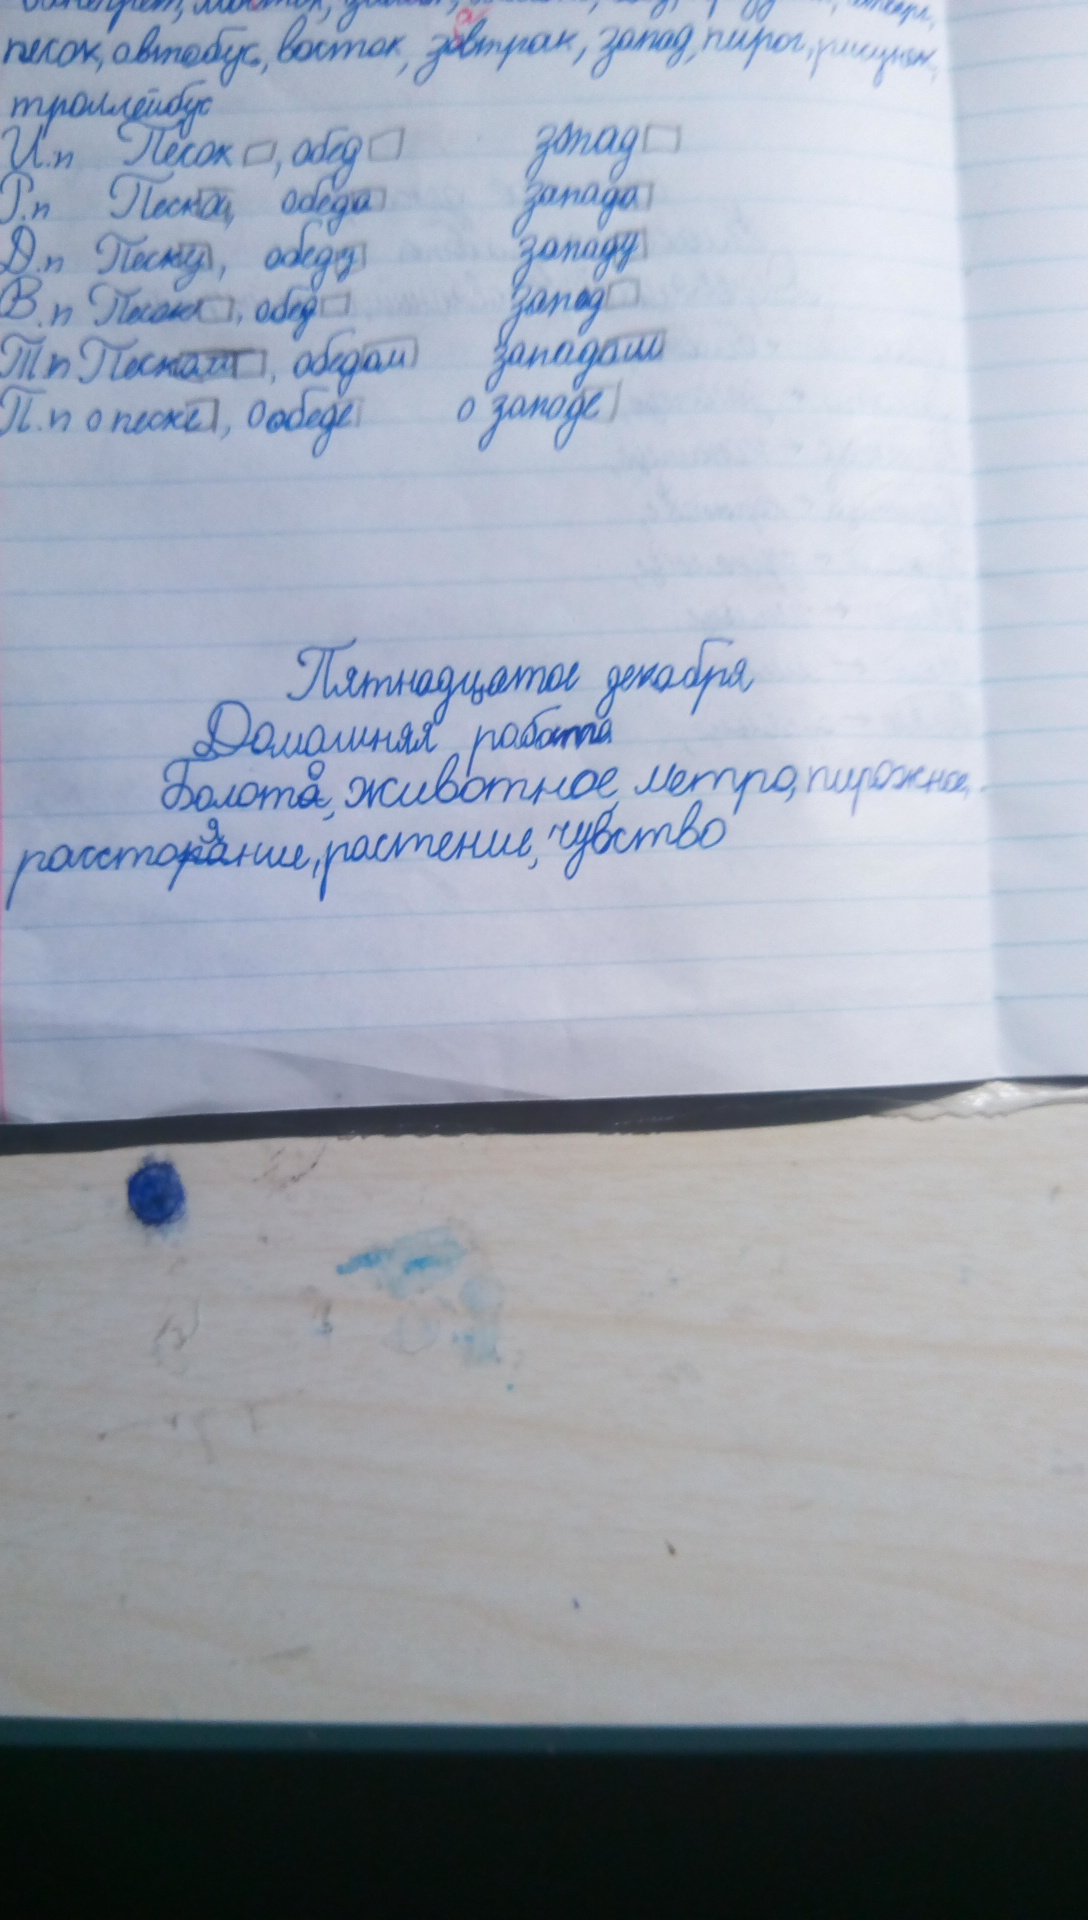 песок, автобус, восток, завтрак, запад, пирог, рисунок,
троллейбус
И.п Песок, обед запад
Р.п Песка, обеда запада
Д.п Песку, обеду западу
В.п Песок, обед запад
Тп Песком, обедом западом
П.п о песке, о обеде о западе
Пятнадцатое декабря
Домашняя работа
Болото, животное, метро, пирожное,
расстояние, растение, чувство